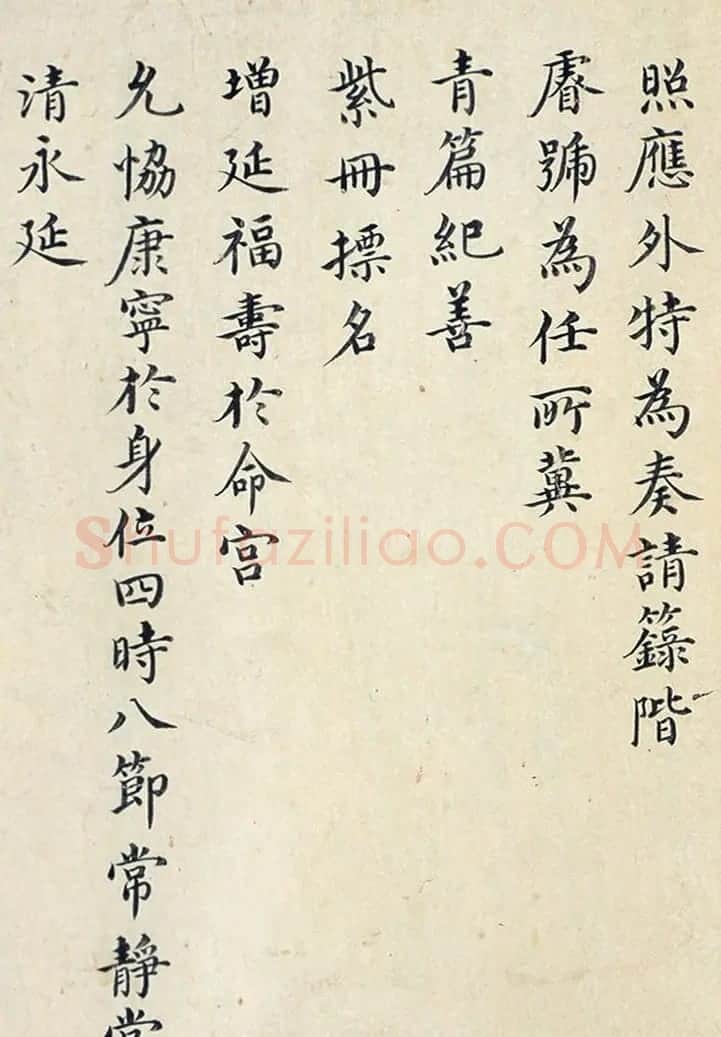 照應外特為奏請籙階
睿號為任所冀
青篇紀善
紫冊摽名
增延福壽於命宮
允恊康寧於身位四時八節常靜常
清永延
Shufaziliao.COM